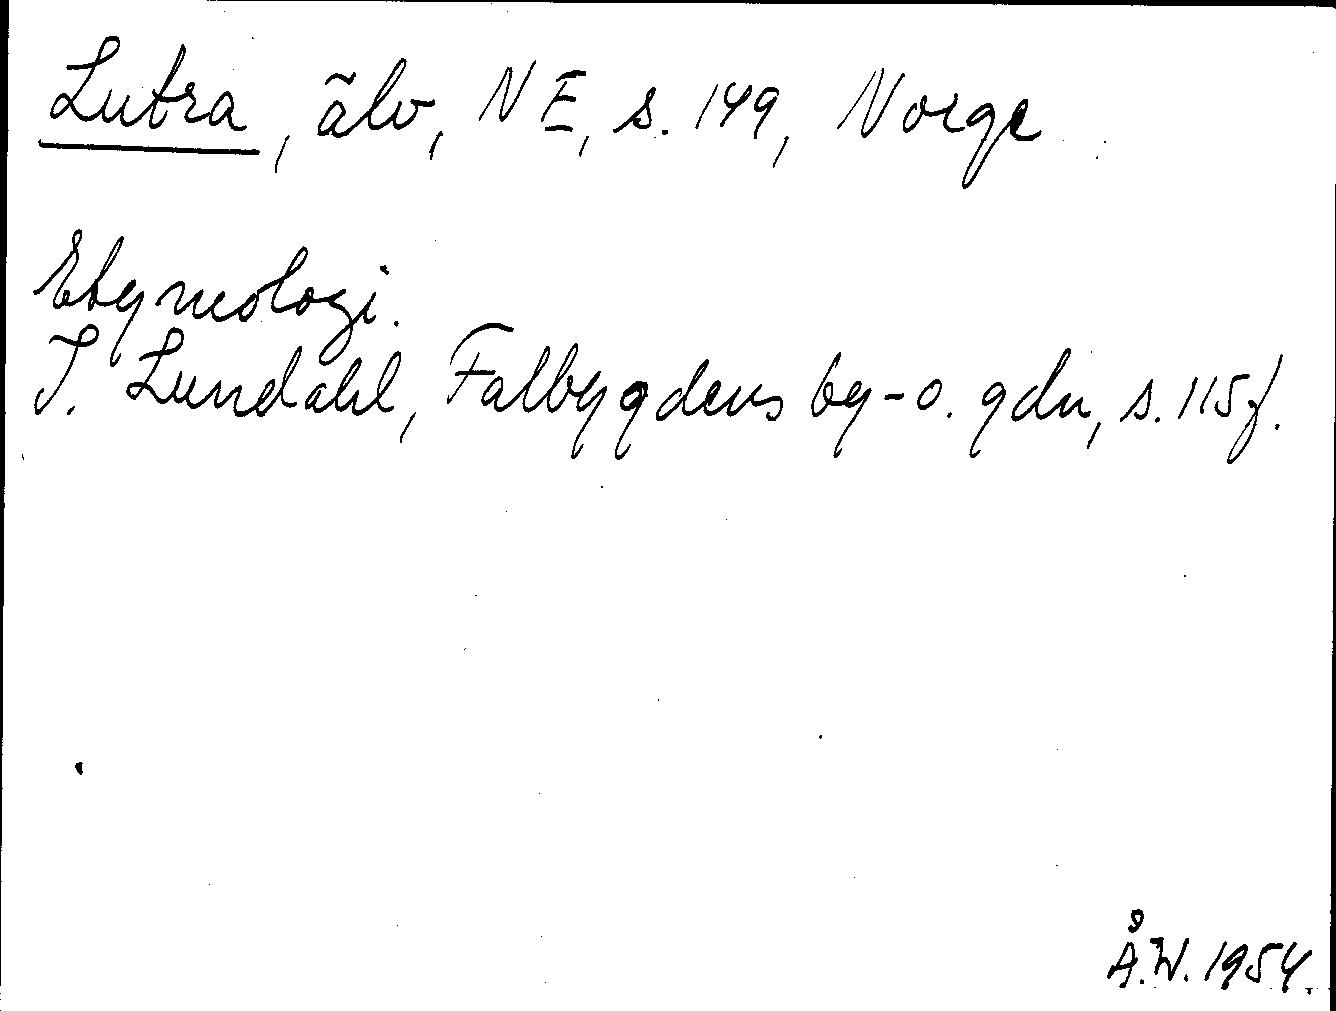 Lutra, älv, NE, s. 149, Norge
Etymologi.
I. Lundahl, Falbygdens by- o. gdn, s. 115 f.
Å.W. 1954.